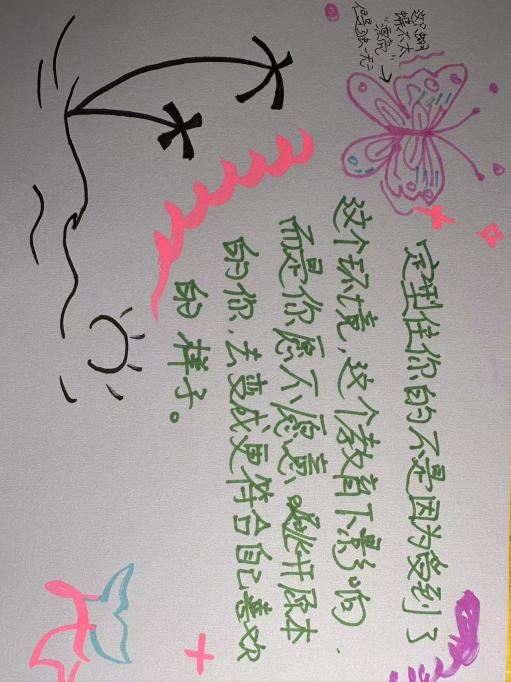 定型住你的不是因为受到了
这个环境、这个教育下影响
而是你愿不愿意、跳开原本
的你、去变成更符合自己喜欢
的样子。
这只蝴
蝶不太
"漂亮"